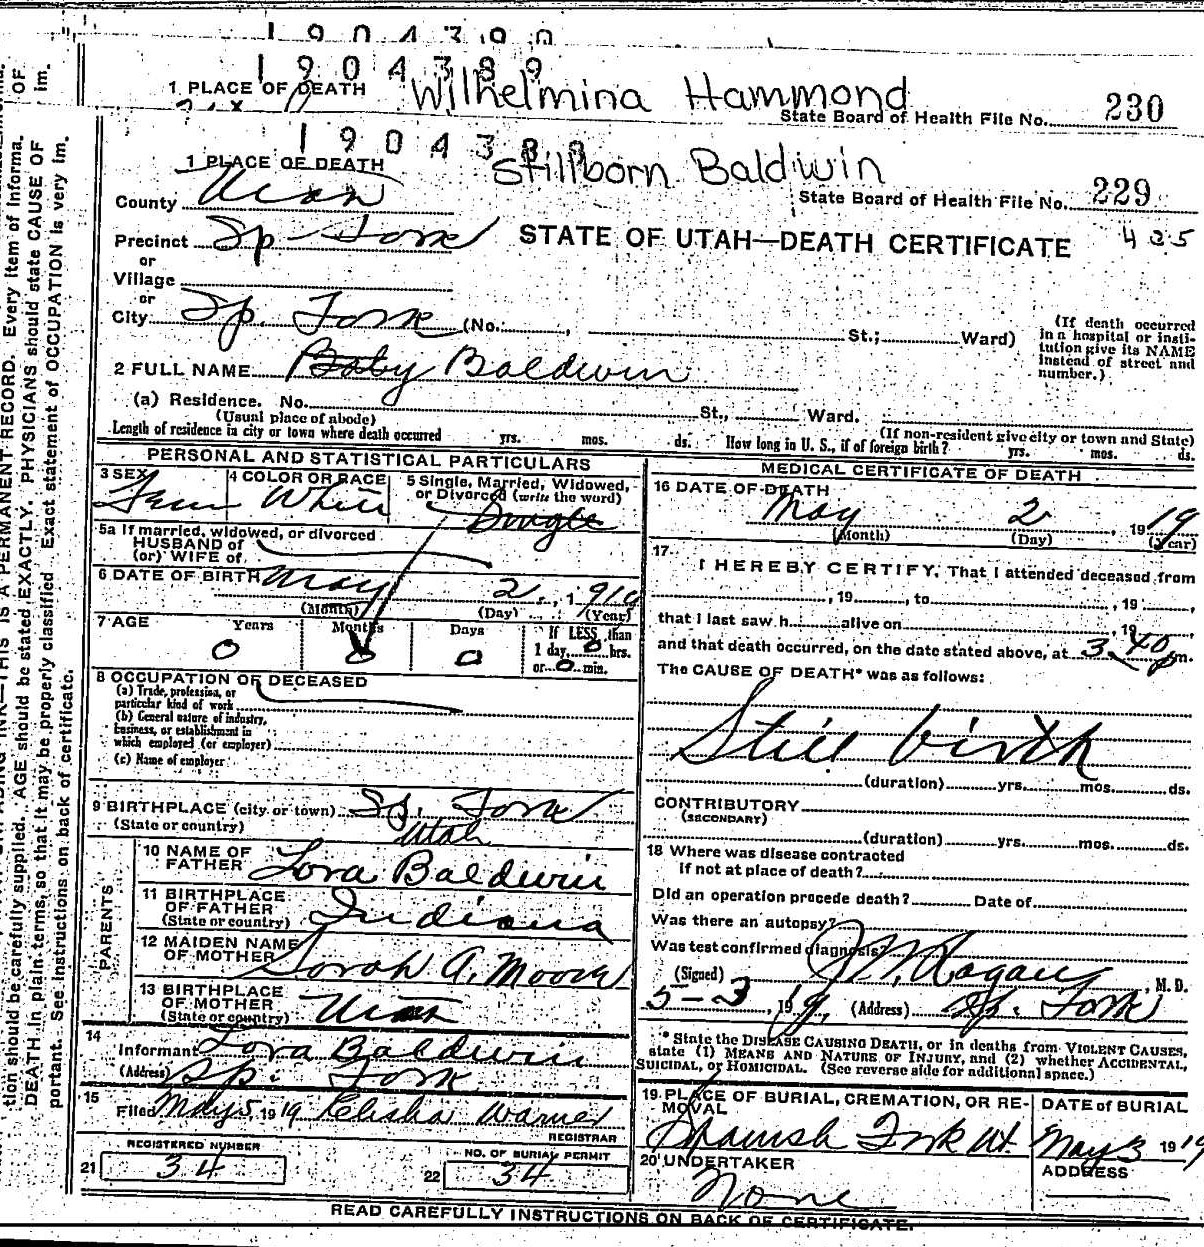 1904390
1904389
1 PLACE OF DEATH Wilhelmina Hammond
State Board of Health File No. 230
190438
1 PLACE OF DEATH Stillborn Baldwin
State Board of Health File No. 229
County Utah
Precinct Sp. Fork STATE OF UTAH—DEATH CERTIFICATE 425
or
Village
or
City Sp. Fork (No. , St.; Ward) (If death occurred in a hospital or institution give its NAME instead of street and number.)
2 FULL NAME Baby Baldwin
(a) Residence. No. St., Ward.
(Usual place of abode) (If non-resident give city or town and State)
Length of residence in city or town where death occurred yrs. mos. ds. How long in U. S., if of foreign birth? yrs. mos. ds.
PERSONAL AND STATISTICAL PARTICULARS
3 SEX Fem 4 COLOR OR RACE White 5 Single, Married, Widowed, or Divorced (write the word) Single
5a If married, widowed, or divorced
HUSBAND of
(or) WIFE of
6 DATE OF BIRTH May 2, 1919
(Month) (Day) (Year)
7 AGE Years Months Days If LESS than
0 0 0 1 day, 0 hrs.
or 0 min.
8 OCCUPATION OF DECEASED
(a) Trade, profession, or
particular kind of work
(b) General nature of industry,
business, or establishment in
which employed (or employer)
(c) Name of employer
9 BIRTHPLACE (city or town) Sp. Fork
(State or country) Utah
PARENTS
10 NAME OF FATHER Lora Baldwin
11 BIRTHPLACE OF FATHER (State or country) Indiana
12 MAIDEN NAME OF MOTHER Sarah A. Moore
13 BIRTHPLACE OF MOTHER (State or country) Utah
14 Informant Lora Baldwin
(Address) Sp. Fork
15 Filed May 5, 1919 Elisha Warner
REGISTRAR
REGISTERED NUMBER NO. OF BURIAL PERMIT
21 34 22 34
MEDICAL CERTIFICATE OF DEATH
16 DATE OF DEATH
May 2 1919
(Month) (Day) (Year)
17. I HEREBY CERTIFY, That I attended deceased from
, 19 , to , 19 ,
that I last saw h alive on , 19
and that death occurred, on the date stated above, at 3-40 p m.
The CAUSE OF DEATH* was as follows:
Still birth
(duration) yrs. mos. ds.
CONTRIBUTORY
(SECONDARY)
(duration) yrs. mos. ds.
18 Where was disease contracted
if not at place of death?
Did an operation precede death? Date of
Was there an autopsy?
Was test confirmed diagnosis?
(Signed) J. W. Hagan, M. D.
5-3, 1919, (Address) Sp. Fork
* State the DISEASE CAUSING DEATH, or in deaths from VIOLENT CAUSES,
state (1) MEANS AND NATURE OF INJURY, and (2) whether ACCIDENTAL,
SUICIDAL, or HOMICIDAL. (See reverse side for additional space.)
19 PLACE OF BURIAL, CREMATION, OR REMOVAL DATE of BURIAL
Spanish Fork Ut. May 3 1919
20 UNDERTAKER ADDRESS
None
READ CAREFULLY INSTRUCTIONS ON BACK OF CERTIFICATE.
THIS IS A PERMANENT RECORD. Every item of informa-
tion should be carefully supplied. AGE should be stated EXACTLY. PHYSICIANS should state CAUSE OF
DEATH in plain terms, so that it may be properly classified. Exact statement of OCCUPATION is very im-
portant. See instructions on back of certificate.